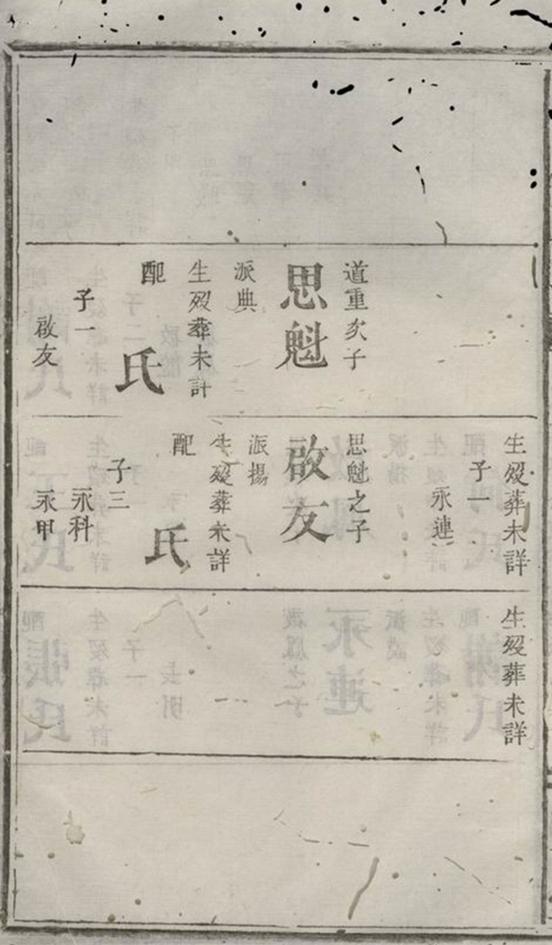 道重次子
思魁
派典
生歿葬未詳
配
氏
子一
啟友
生歿葬未詳
子一
永連
思魁之子
啟友
派揚
生歿葬未詳
配
氏
子三
永科
永甲
生歿葬未詳